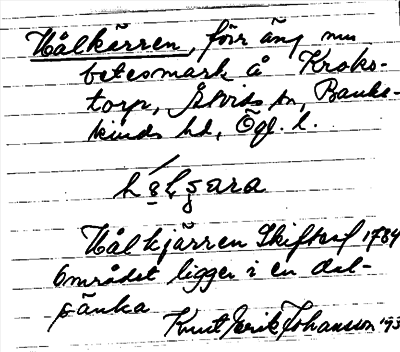 Hålkärren, förr äng nu
betesmark å Kroks-
torp, Åtvids sn, Banke-
kinds hd, Ögl. l.
Hålkjärren Skifteskf 1784
Området ligger i en dal-
sänka
Knut Erik Johansson '93